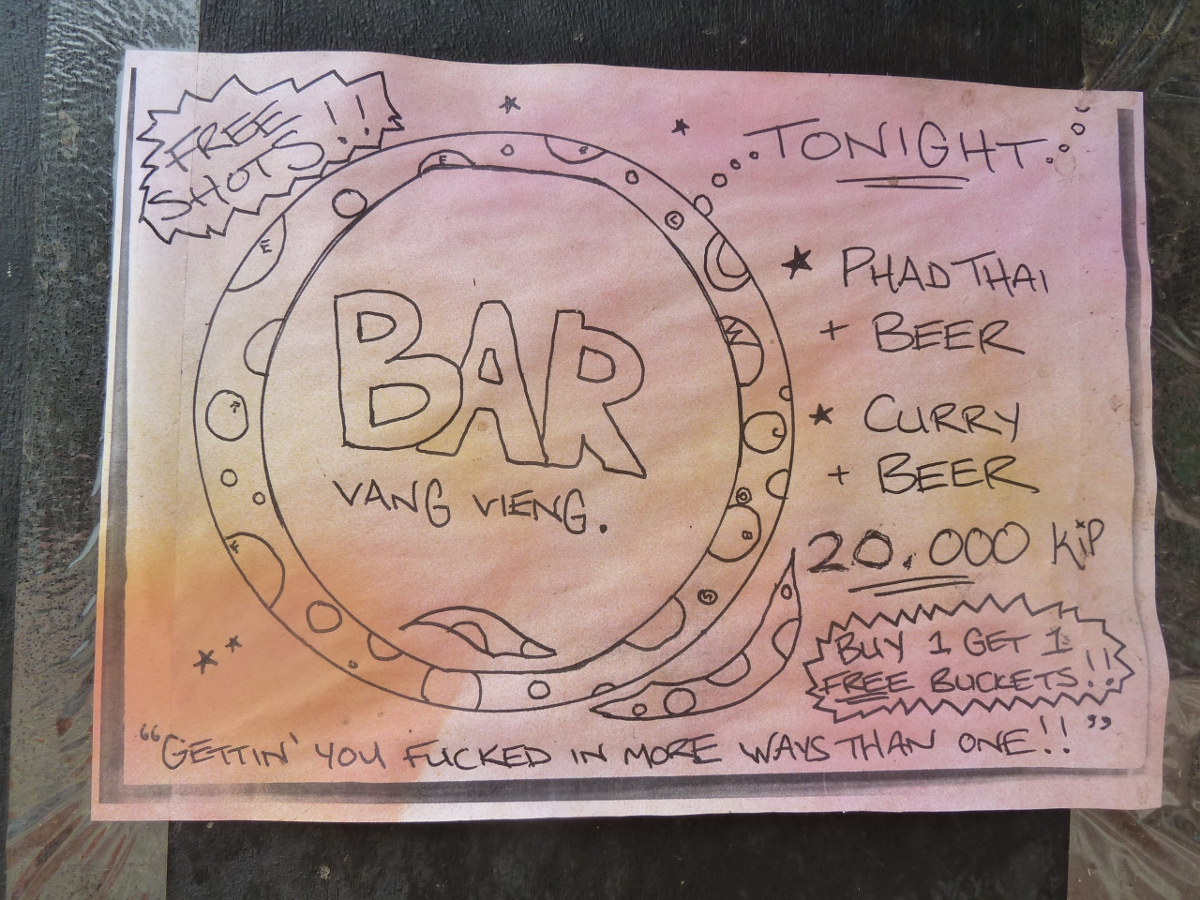 FREE
SHOTS!!
BAR
VANG VIENG.
TONIGHT
PHAD THAI
+ BEER
CURRY
+ BEER
20.000 KiP
BUY 1 GET 1
FREE BUCKETS!!
“GETTIN' YOU FUCKED IN MORE WAYS THAN ONE!!”